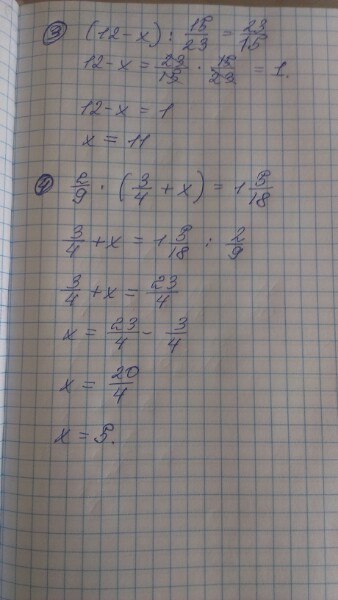 ③ (12-x) : 15/23 = 23/15
12-x = 23/15 · 15/23 = 1.
12-x = 1
x = 11
④ 2/9 · (3/4 + x) = 1 5/18
3/4 + x = 1 5/18 : 2/9
3/4 + x = 23/4
x = 23/4 - 3/4
x = 20/4
x = 5.